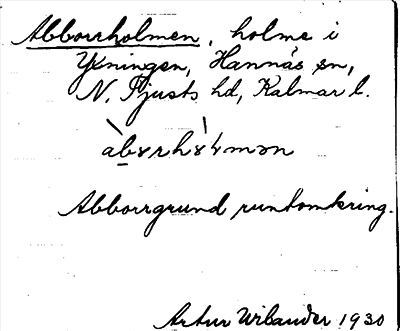 Abborrholmen, holme i
Yxningen, Hannäs sn,
N. Tjusts hd, Kalmar l.
Abborrgrund runtomkring.
Artur Wilander 1930